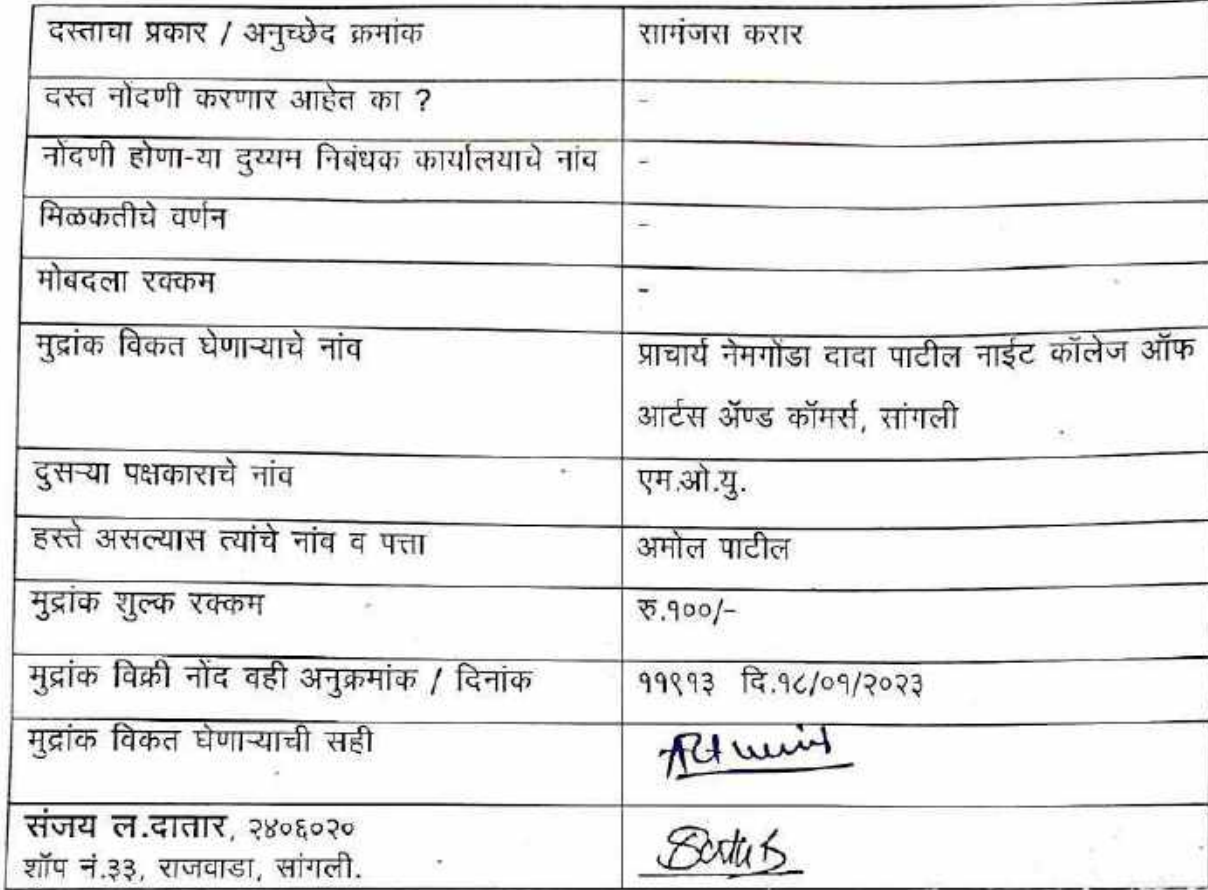 दस्ताचा प्रकार / अनुच्छेद क्रमांक
सामंजस करार
दस्त नोंदणी करणार आहेत का ?
-
नोंदणी होणा-या दुय्यम निबंधक कार्यालयाचे नांव
-
मिळकतीचे वर्णन
-
मोबदला रक्कम
-
मुद्रांक विकत घेणाऱ्याचे नांव
प्राचार्य नेमगोंडा दादा पाटील नाईट कॉलेज ऑफ
आर्टस ॲण्ड कॉमर्स, सांगली
दुसऱ्या पक्षकाराचे नांव
एम.ओ.यु.
हस्ते असल्यास त्यांचे नांव व पत्ता
अमोल पाटील
मुद्रांक शुल्क रक्कम
रु.१००/-
मुद्रांक विक्री नोंद वही अनुक्रमांक / दिनांक
११९१३ दि.१८/०१/२०२३
मुद्रांक विकत घेणाऱ्याची सही
संजय ल.दातार, २४०६०२०
शॉप नं.३३, राजवाडा, सांगली.